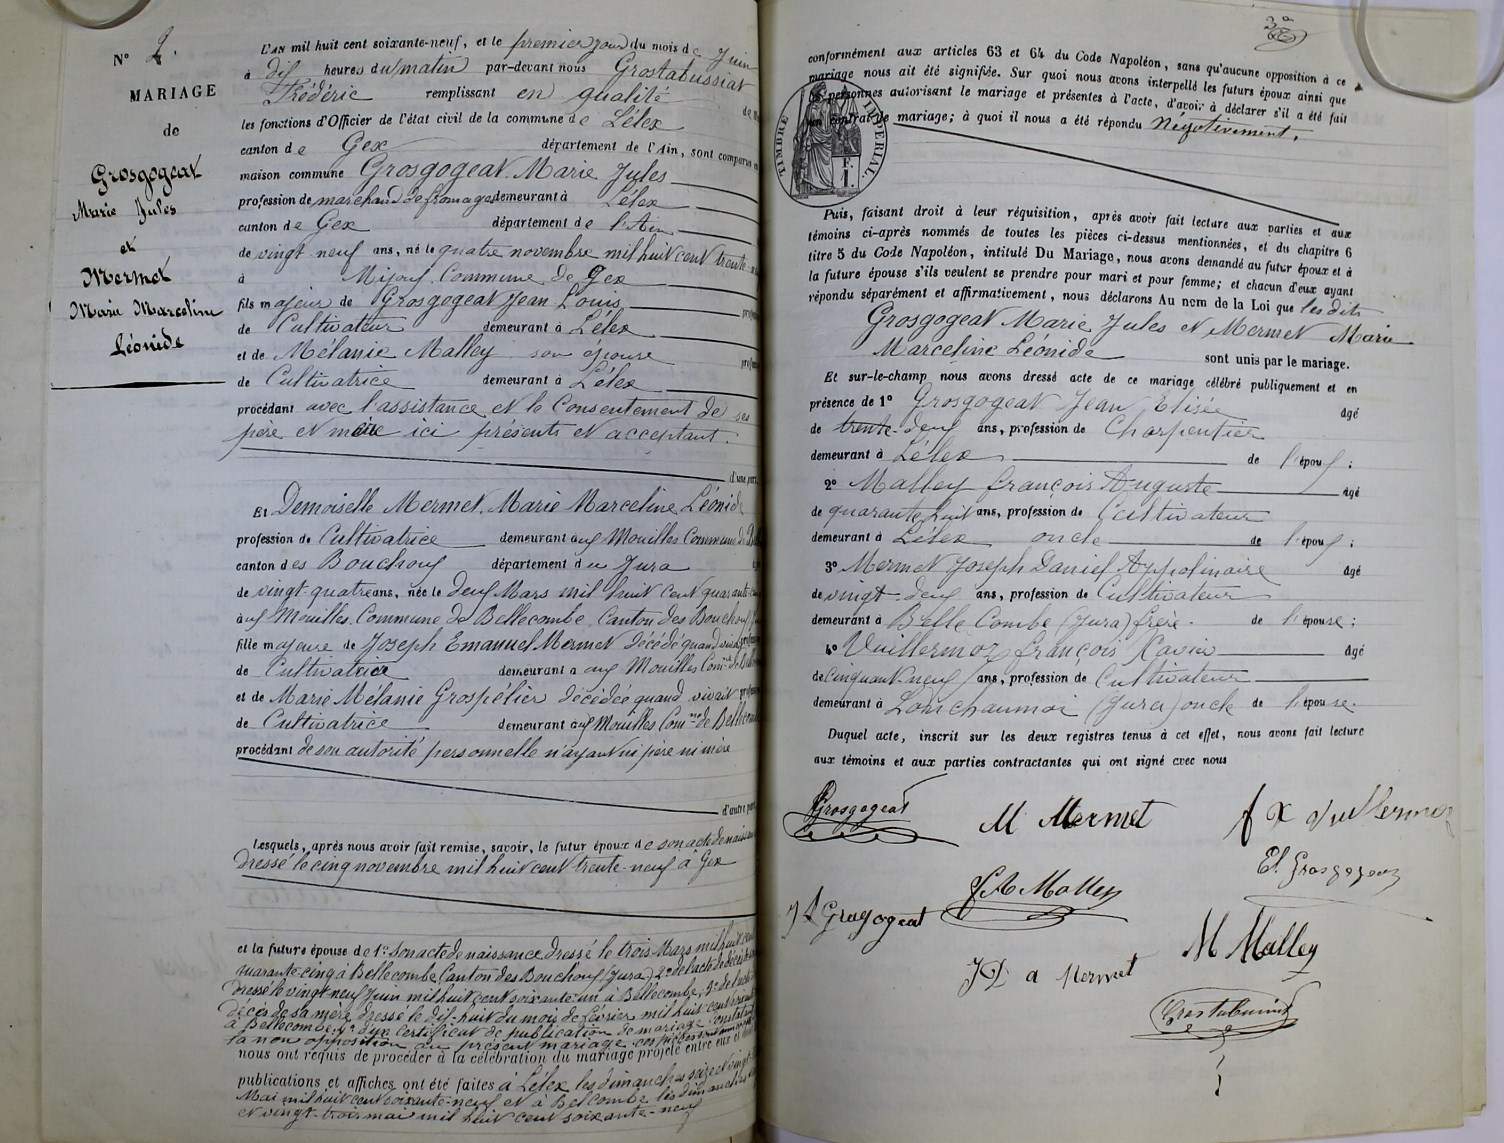 N° 2.
MARIAGE
de
Grosgogeat
Marie Jules
et
Mermet
Marie Marceline
Léonide
L'AN mil huit cent soixante-neuf, et le premier jour du mois de Juin
à dix heures du matin par-devant nous Grostabussiat
Frédéric remplissant en qualité de
les fonctions d'Officier de l'état civil de la commune de Lélex
canton de Gex département de l'Ain, sont comparus en
maison commune Grosgogeat Marie Jules
profession de marchand de fromages demeurant à Lélex
canton de Gex département de l'Ain
de vingt neuf ans, né le quatre novembre mil huit cent trente-
à Mijoux Commune de Gex
fils majeur de Grosgogeat Jean Louis
de Cultivateur demeurant à Lélex
et de Mélanie Malley son épouse
de Cultivatrice demeurant à Lélex
procédant avec l'assistance et le Consentement de ses
père et mère ici présents et acceptant.
d'une part.
Et Demoiselle Mermet, Marie Marceline Léonide
profession de Cultivatrice demeurant aux Mouilles Commune de
canton des Bouchoux département du Jura
de vingt-quatre ans, née le deux Mars mil huit cent quarante-cinq
aux Mouilles Commune de Bellecombe, Canton des Bouchoux
fille majeure de Joseph Emanuel Mermet décédé quand vivait
de Cultivatrice demeurant à aux Mouilles Com.ne de
et de Marie Mélanie Grospélier décédée quand vivait
de Cultivatrice demeurant aux Mouilles Com.ne de Bellecombe
procédant de son autorité personnelle n'ayant ni père ni mère
d'autre part
Lesquels, après nous avoir fait remise, savoir, le futur époux de son acte de naissance
dressé le cinq novembre mil huit cent trente-neuf à Gex
et la future épouse de 1° Son acte de naissance dressé le trois Mars mil huit cent
quarante cinq à Bellecombe Canton des Bouchoux (Jura) 2° de l'acte de décès de
dressé le vingt neuf Juin mil huit cent soixante un à Bellecombe, 3° de l'acte de
décès de sa mère dressé le dix-huit du mois de février mil huit cent
à Bellecombe, 4° d'un certificat de publication de mariage constatant
la non opposition au présent mariage ces pièces
nous ont requis de procéder à la célébration du mariage projeté entre eux et
publications et affiches ont été faites à Lélex les dimanches seize et vingt-
Mai mil huit cent soixante-neuf et à Belcombe les dimanches
et vingt-trois mai mil huit cent soixante-neuf
conformément aux articles 63 et 64 du Code Napoléon, sans qu'aucune opposition à ce
mariage nous ait été signifiée. Sur quoi nous avons interpellé les futurs époux ainsi que
les personnes autorisant le mariage et présentes à l'acte, d'avoir à déclarer s'il a été fait
un contrat de mariage; à quoi il nous a été répondu Négativement.
TIMBRE IMPÉRIAL
Puis, faisant droit à leur réquisition, après avoir fait lecture aux parties et aux
témoins ci-après nommés de toutes les pièces ci-dessus mentionnées, et du chapitre 6
titre 5 du Code Napoléon, intitulé Du Mariage, nous avons demandé au futur époux et à
la future épouse s'ils veulent se prendre pour mari et pour femme; et chacun d'eux ayant
répondu séparément et affirmativement, nous déclarons Au nom de la Loi que les dits
Grosgogeat Marie Jules et Mermet Marie
Marceline Léonide sont unis par le mariage.
Et sur-le-champ nous avons dressé acte de ce mariage célébré publiquement et en
présence de 1° Grosgogeat Jean Elisée âgé
de trente-deux ans, profession de Charpentier
demeurant à Lélex de l'époux;
2° Malley françois Auguste âgé
de quarante huit ans, profession de Cultivateur
demeurant à Lélex oncle de l'époux;
3° Mermet Joseph Daniel Appolinaire âgé
de vingt-deux ans, profession de Cultivateur
demeurant à Belle Combe (Jura) frère de l'épouse;
4° Vuillermoz françois Xavier âgé
de cinquante-neuf ans, profession de Cultivateur
demeurant à Lonchaumoi (Jura) oncle de l'épouse.
Duquel acte, inscrit sur les deux registres tenus à cet effet, nous avons fait lecture
aux témoins et aux parties contractantes qui ont signé avec nous
Grosgogeat M Mermet f X Vuillermoz
El. Grosgogeat
f A Malley
J L Grosgogeat
M Malley
J D a Mermet
Grostabussiat